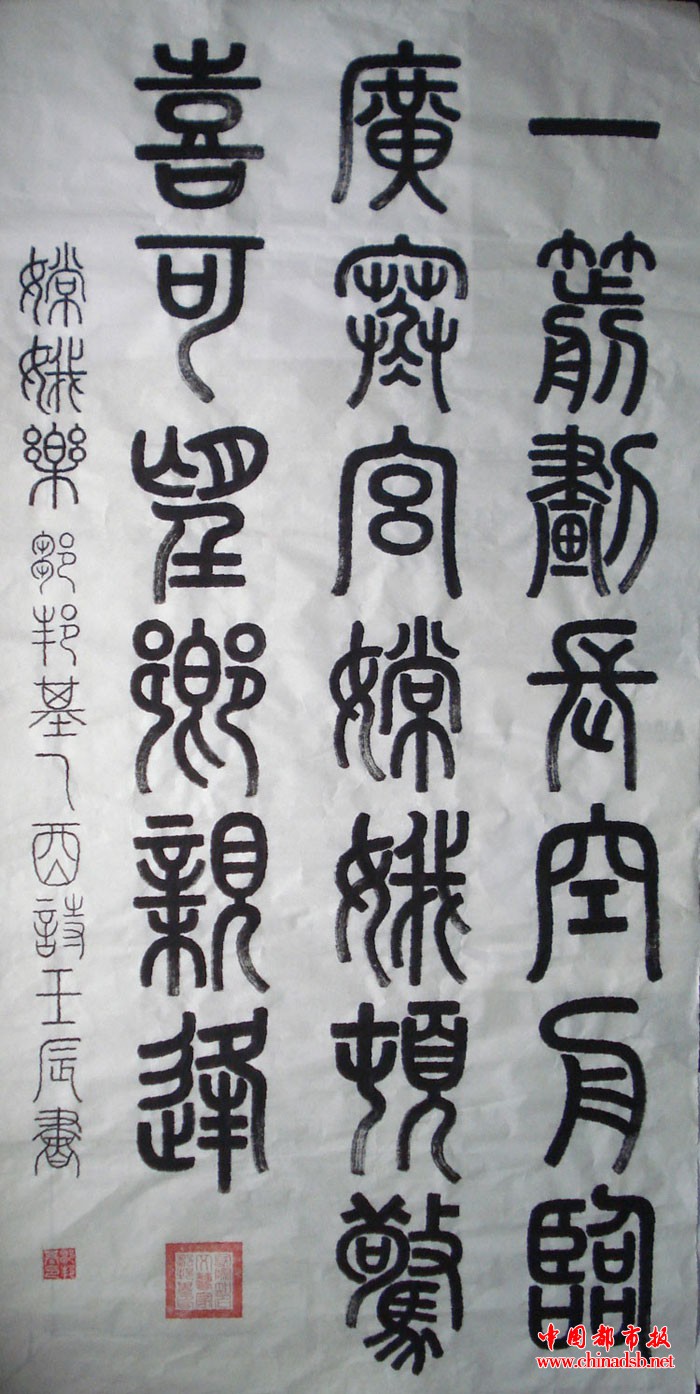 一箭劃長空身臨
廣寒宮嫦娥頓驚
喜可望鄉親逢
嫦娥樂 鄒邦基酉詩壬辰書
中国都市报
www.chinadsb.net